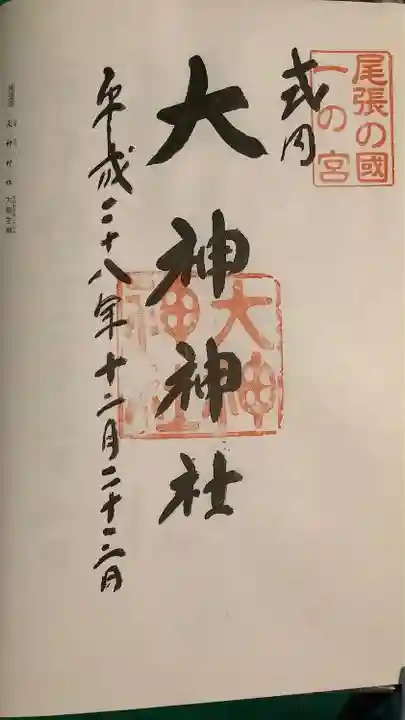 尾張の國
一の宮
式内
大神神社
大神
神社
平成二十八年十二月二十三日